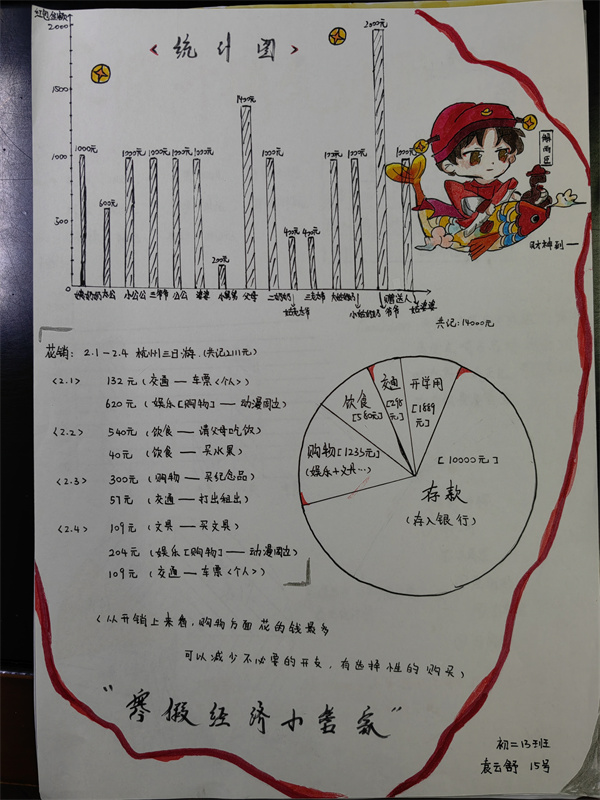 红包金额
2000
1500
1000
500
《统计图》
1000元
600元
1000元
1000元
1000元
1000元
200元
1400元
1000元
400元
400元
1000元
1000元
2000元
1000元
小公公
三爷爷
公公
婆婆
父母
赠送人
共记:14000元
财神到一
花销: 2.1-2.4 杭州三日游.(共记2111元)
<2.1> 132元(交通—车票<个人>)
620元(娱乐[购物]—动漫周边)
<2.2> 540元(饮食—请父母吃饭)
40元(饮食—买水果)
<2.3> 300元(购物—买纪念品)
57元(交通—打出租出)
<2.4> 109元(文具—买文具)
204元(娱乐[购物]—动漫周边)
109元(交通—车票<个人>)
饮食
[580元]
交通
[298元]
开学用
[1889元]
购物[1233元]
(娱乐+文具…)
[10000元]
存款
(存入银行)
(从开销上来看,购物方面花的钱最多
可以减少不必要的开支,有选择性的购买)
“寒假经济小当家”
初二13班
袁云舒 15号